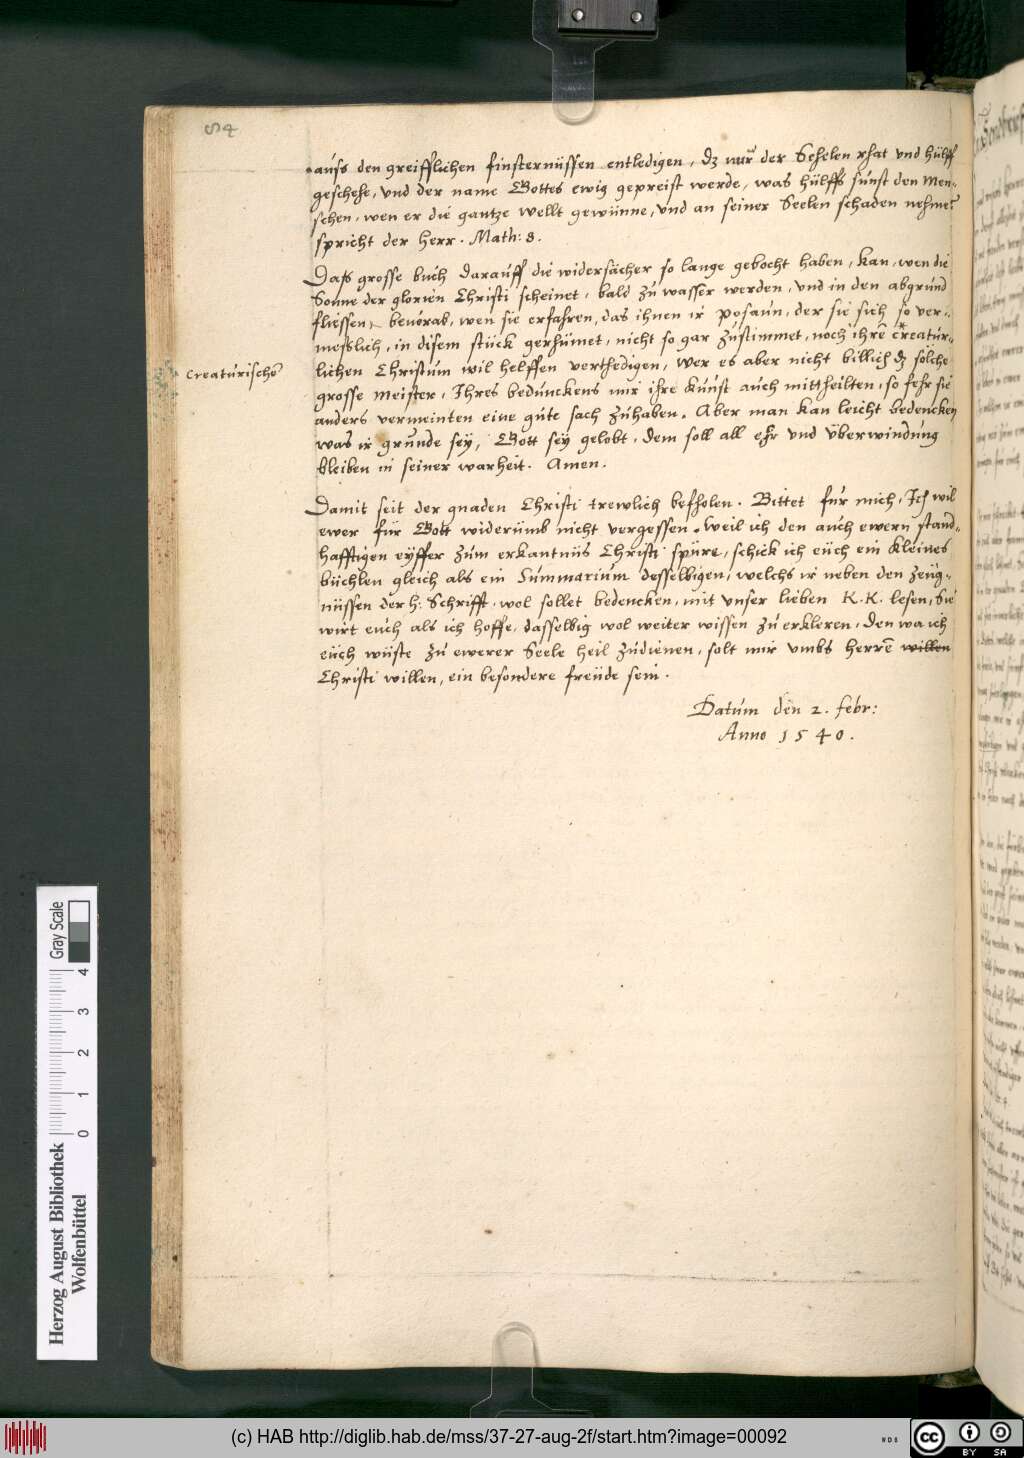 84
auss den greifflichen finsternüssen entledigen, dz nur der Sehelen rhat und hülff
geschehe, und der name Gottes ewig gepreist werde, was hülffs sunst den Men-
schen, wen er die gantze wellt gewünne, und an seiner Seelen schaden nehme?
spricht der herr. Math: 8.
Dass grosse buch darauff die widersächer so lange gebocht haben, kan, wen die
Sonne der glorien Christi scheinet, bald zu wasser werden, und in den abgrund
fliessen, bevorab, wen sie erfahren, das ihnen ir posaun, der sie sich so ver-
messlich, in disem stück gerhümet, nicht so gar zustimmet, noch ihrē creatur-
lichen Christum wil helffen verthedigen, Wer es aber nicht billich dz solche
creaturischē
grosse meister, Ihres bedunckens mir ihre kunst auch mittheilten, so fehr sie
anders vermeinten eine gute sach zuhaben. Aber man kan leicht bedencken
was ir grunde sey, Gott sey gelobt, dem soll all ehr und überwindung
bleiben in seiner warheit. Amen.
Damit seit der gnaden Christi trewlich befholen. Bittet für mich, Ich wil
ewer für Gott widerumb nicht vergessen. Weil ich den auch ewern stand-
hafftigen eyffer zum erkantnüs Christi spüre, schick ich euch ein kleines
büchlen gleich als ein Summarium desselbigen, welchs ir neben den zeüg-
nüssen der h: Schrifft wol sollet bedencken, mit unser lieben K. K. lesen, Sie
wirt euch als ich hoffe, dasselbig wol weiter wissen zu erkleren, Den wa ich
euch wüste zu ewerer Seele heil zudienen, solt mir umbs herrē willen
Christi willen, ein besondere freüde sein.
Datum den 2. febr:
Anno 1540.
Gray Scale
0 1 2 3 4
Herzog August Bibliothek
Wolfenbüttel
(c) HAB http://diglib.hab.de/mss/37-27-aug-2f/start.htm?image=00092
WDB
cc BY SA